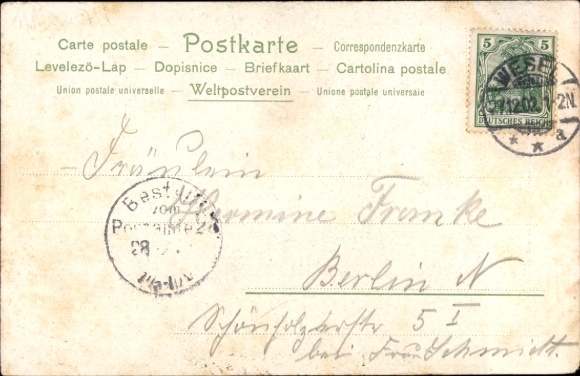 Carte postale — Postkarte — Correspondenzkarte
Levelezö-Lap — Dopisnice — Briefkaart — Cartolina postale
Union postale universelle — Weltpostverein — Unione postale universale
5 5
DEUTSCHES REICH
WESEL
12.02. 1-2N.
* * a
Fräulein
Hermine Francke
Berlin N
5 I
bei Frau Schmidt.
Bestellt
vom
Postamte
28